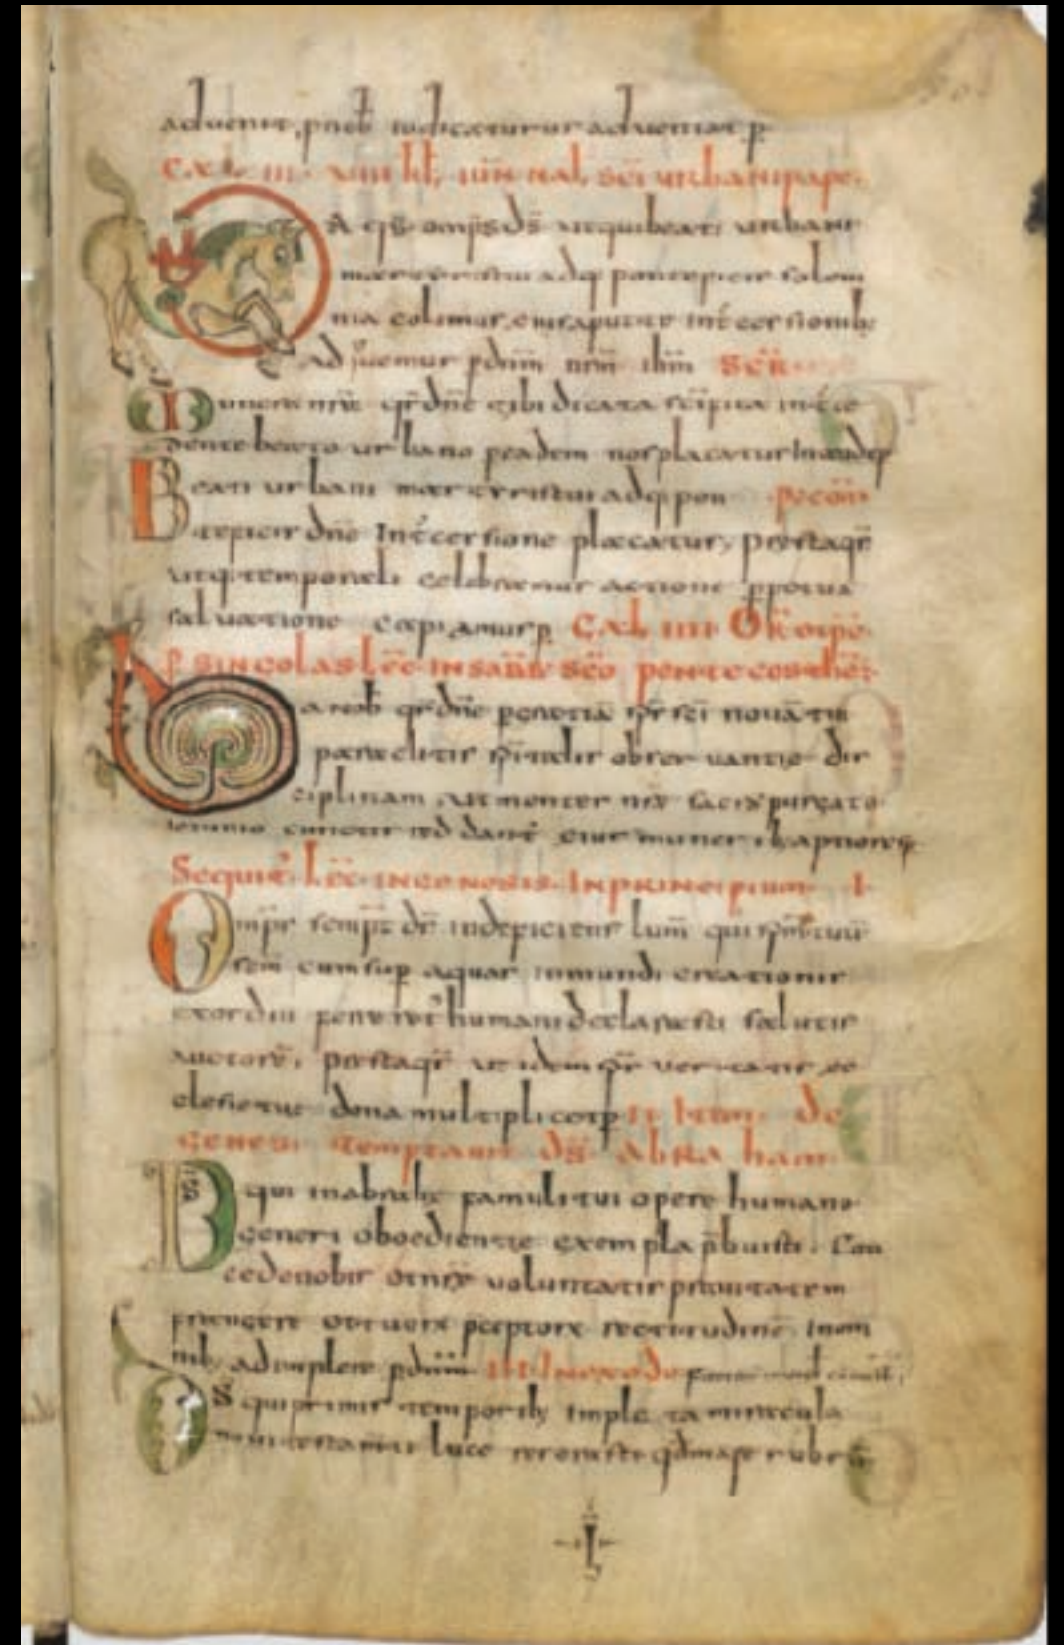 aduenit, p nob iudicaturus adueniat p
CXLIII. VIII kl iun nal sci urbani pape.
DA qs omps ds ut qui beati urbani
martyris tui adq pontificis solem
nia colimus, eius aput te intercessionib;
adiuuemur p dnm nrm ihm SCR
Munera nra qs dne tibi dicata scifica et inter
dente beato urbano p eadem nos placatus intende p
Beati urbani martyris tui adq pon p com
tificis dne intercessione placatus, presta qs
ut q temporali celebramus actione perpetua
saluatione capiamus p CXL IIII OR
P SINGOLAS LEC IN SABB SCO PENTECOSTHEN
Da nob qs dne p gratia sps sci nouam tui
paracliti spiritalis obseruantie dis
ciplinam, ut mentes nre sacro purgate
ieiunio cunctis reddant eius muneribus aptiores
Sequit LEC IN GENESIS. IN PRINCIPIUM I
Omps sempt ds indeficiens lum qui spm tuu
scm cum sup aquas in mundi creationis
exordiu ferretur humani declarasti salutis
auctore, presta qs ut idem sps ueritatis ec
clesie tue dona multiplicet p II Item de
genesi temptauit ds abraham
Ds qui in abrahe famuli tui opere humano
generi oboedientie exempla pbuisti. Con
cede nobis et nre uoluntatis prauitatem
frangere et tuorx preceptorx rectitudine in om
nib; adimplere p dnm III In exodo factum
Ds qui primis temporib; impleta miracula
noui testamenti luce reserasti qd mare rubru